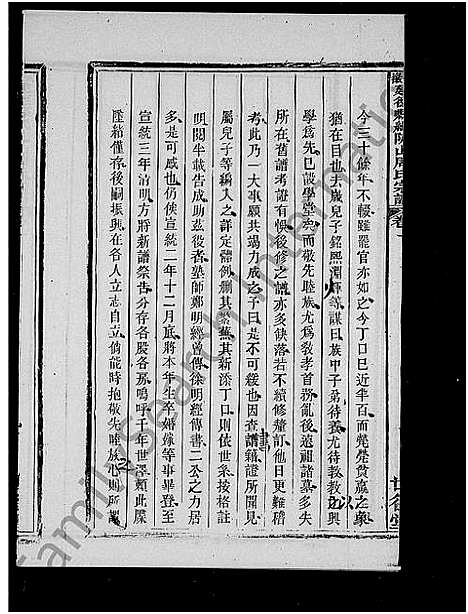 今三十餘年不輟雖罷官亦如之今丁口已近半百而煢煢貧羸之象
猶在目也去歲兒子銘熙謀曰族中子弟待養尤待教教之以興
學爲先已設學堂矣而敬先睦族尤爲敎孝首務亂後遠祖諸墓多失
所在舊譜考證有悞後修之譜亦多缺落若不續修釐訂他日更難稽
考此乃一大事願共竭力成之予曰是不可緩也因查譜籍證所聞見
屬兒子等編人之詳定體例刪其繁蕪其新添丁口則依世系按格註
明閱半載告成助茲役者塾師鄭明經曾傳徐明經傳書二公之力居
多是可感也仍俟宣統二年十二月底將本年生卒婚嫁等事畢登至
宣統三年清明方將新譜祭告分存各股各房嗚呼千年世澤賴此牒
匪緒僅存後嗣振興在各人立志自立倘能時抱敬失睦族之心則所謂
Family Search International